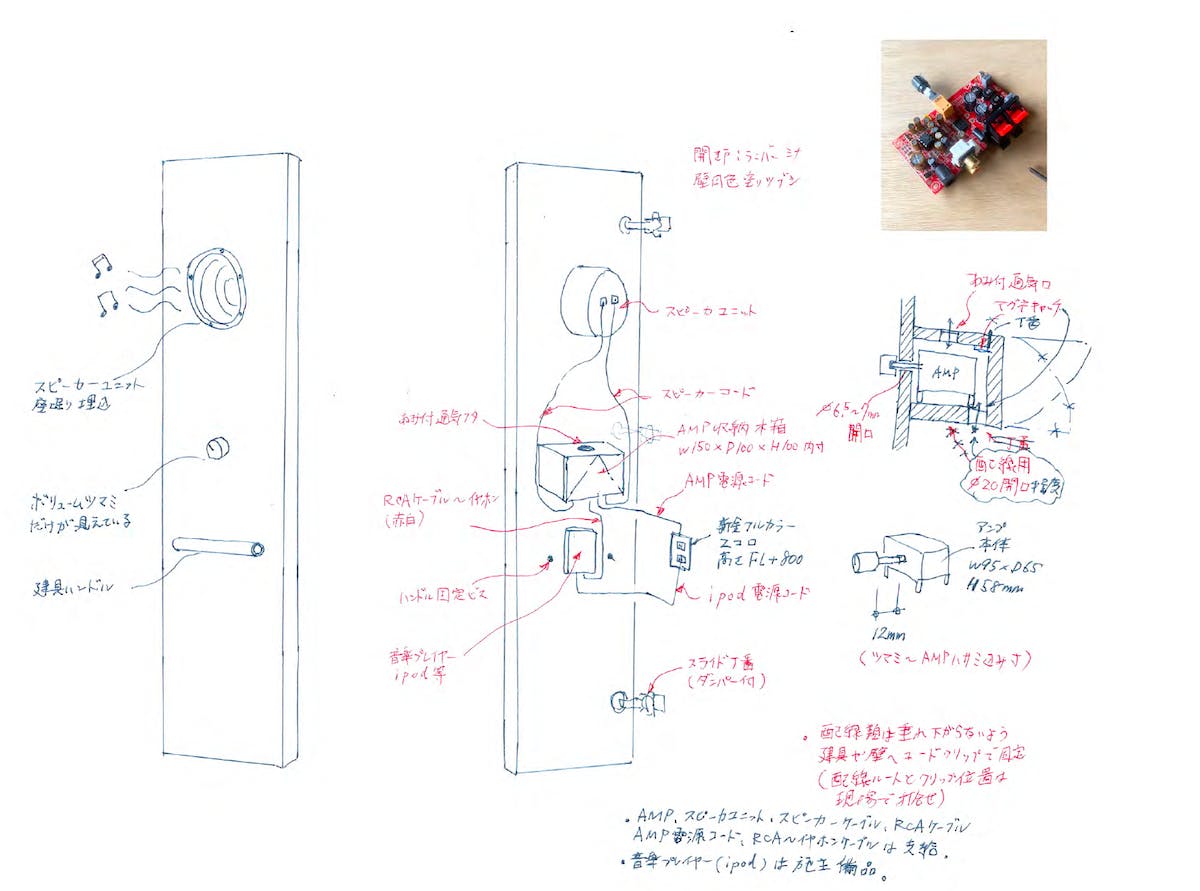 スピーカーユニット
座堀り埋込
ボリュームツマミ
だけが見えている
建具ハンドル
壁同色塗りツブシ
スピーカユニット
スピーカーコード
あみ付通気フタ
AMP収納木箱
W150×D100×H100内寸
AMP電源コード
RCAケーブル〜イヤホン
(赤白)
新金フルカラー
2コ口
高さFL+800
ハンドル固定ビス
ipod電源コード
音楽プレイヤー
ipod等
スライド丁番
(ダンパー付)
あみ付通気口
マグネキャッチ
丁番
AMP
φ6.5〜7mm
開口
丁番
配線用
φ20開口程度
アンプ
本体
W95×D65
H58mm
12mm
(ツマミ〜AMPハサミ込み寸)
・配線類は垂れ下がらないよう
建具や壁へコードクリップで固定
(配線ルートとクリップ位置は
現場で打合せ)
・AMP、スピーカユニット、スピーカーケーブル、RCAケーブル
AMP電源コード、RCA〜イヤホンケーブルは支給。
・音楽プレイヤー(ipod)は施主備品。